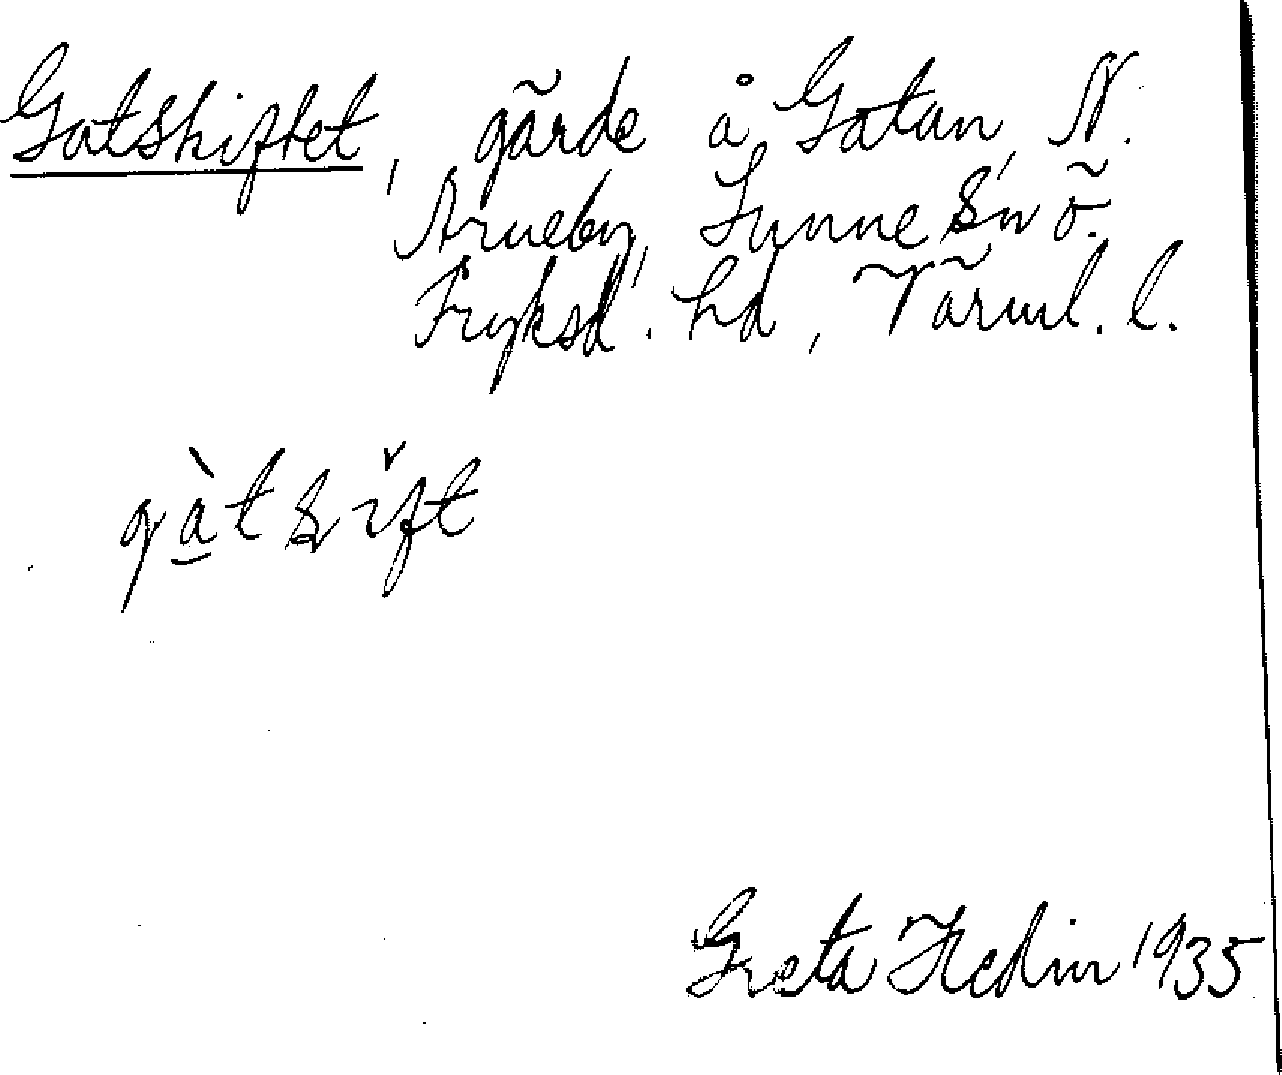 Gatskiftet, gärde å Gatan, N.
Arneby, Sunne sn ö.
Fryksd. hd, Värml. l.
gàtsǐft
Greta Hedin 1935